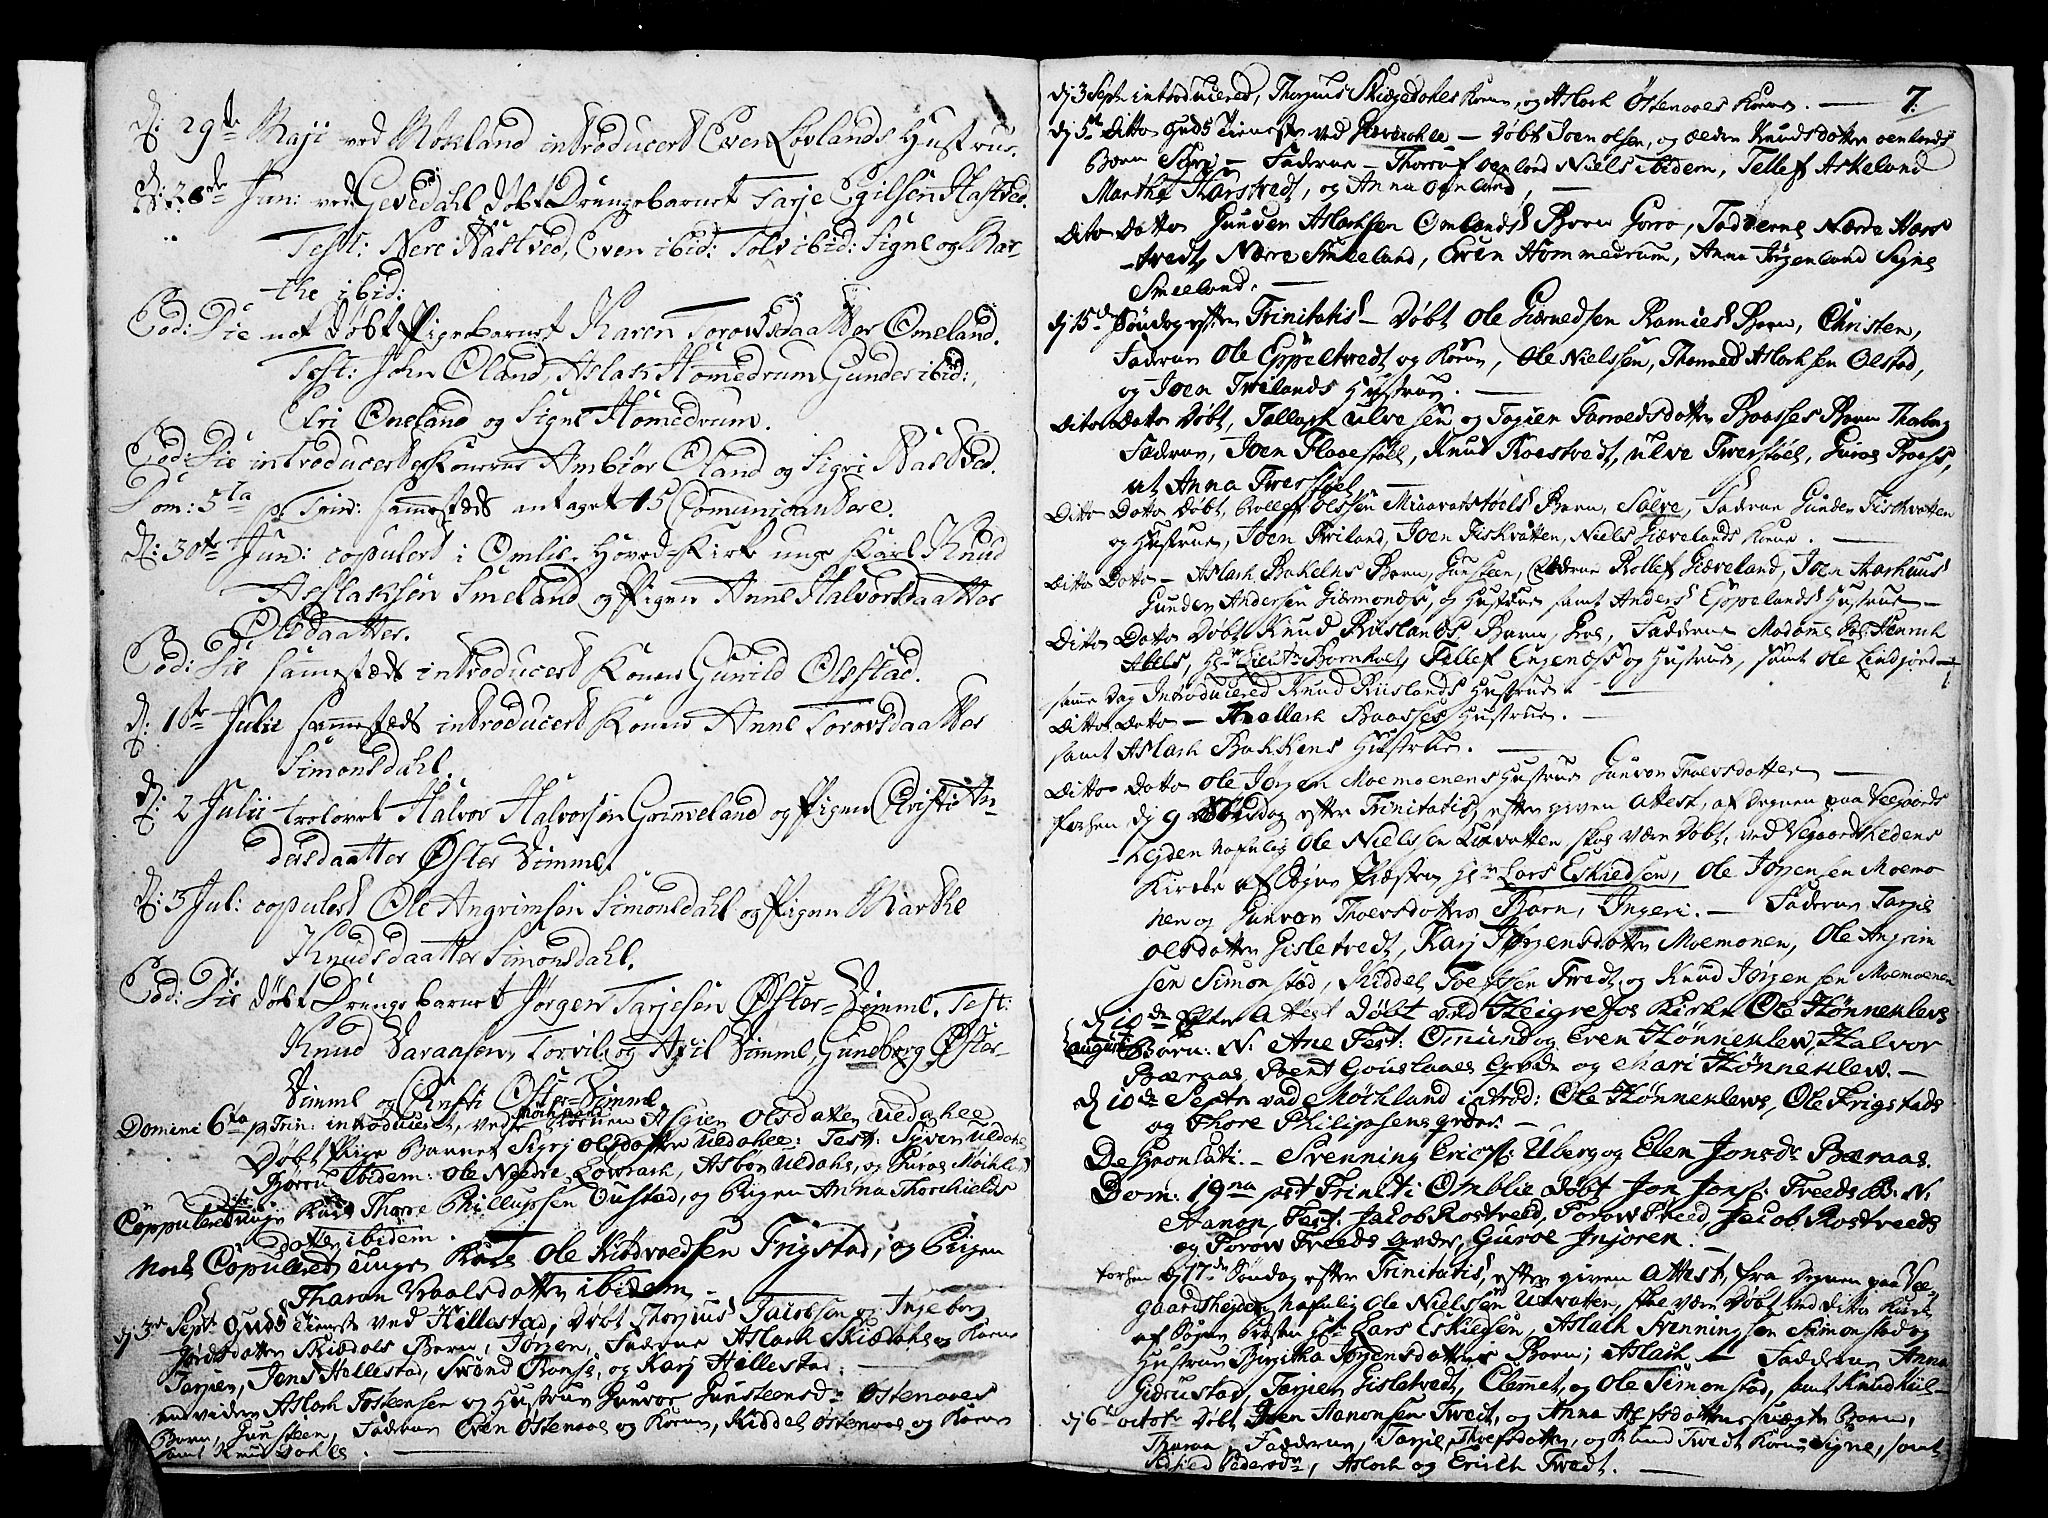 d: 29de Maji ved Mokland introducert Even Lovlands Hustrue.
d: 26de Jun: ved Gevedahl døbt Drengebarnet Tarje Egilsøn Hastved.
Test: Nere Hastved, Even ibid: Tolv ibid: Signe og Mar-
the ibid:
Eod: Die not døbt Pigebarnet Karen Torovsdaatter Omeland.
Test: John Øland, Aslak Homedrum Gunder ibid:,
Eri Omeland og Signe Homedrum.
Eod: Die introducert Konerne Ambiør Øland og Sigri Hastved.
Dom: 5ta p. Trin: sammestæds antaget 15 Communicantere.
d: 30te Jun: copulert i Omlie Hoved-Kirke unge Karl Knud
Aslaksøn Smeland og Pigen Anne Halvorsdaatter
Olsdaatter.
Eod: Die sammestæds introducert Konen Gunild Olsstad.
d: 1ste Julii sammestæds introducert Konen Anne Torovsdaatter
Simonsdahl.
d: 2 Julii trolovet Halvor Halvorsøn Grimeland og Pigen Christi An-
dersdaatter Øster Vimme.
d: 3 Jul: copulert Ole Angrimsøn Simonsdahl og Pigen Marthe
Knudsdaatter Simonsdahl.
Eod: Die døbt Drengebarnet Jørgen Tarjesøn Øster-Vimme. Test:
Knud Saraansøn, Torvil og Asil Vimme, Gunborg Øster-
Vimme og Christi Øster-Vimme
Domini 6ta p Trin: introduceret, ved Mokland Konen Asgien Olsdatter Uedahee
Døbt Pige Barnet Sigrj Olsdatter Uldalee: Test: Syven Uldahl
Børru Ibidem: Ole Nedre Løvbach, Asbør Uldahl, og Guroe Mokla
Coppuleret unge Karl Thore Phillupsen Oustad, og Pigen Anna Thorkields
dotter ibidem.
Noch Copuleret unge Karl Ole Kiødvedsen Frigstad, og Pigen
Tharan Vraalsdatter ibidem
dj 3de Sept Guds Tieneste ved Hillestad, Døbt Thorjus Jacobsen og Ingeborg
Jørdsdatter Skiædals Barn, Jørgen, Faderne Aslach Skiædahl og Kone
Tarjus, Jens Hellestad, Svend Ramse, og Karj Hellestad
Aslach Tosteensen og Hustrue Gunvor Gunsteensdr Østenaaes
Barn, Gunsteen, Fadderne Even Østenaae og Kone, Kiddel Østenaae og Kone
samt Knud Dahle.
7.
dj 3 Sept introducered, Thorjus Skiægedahls Kone, og Aslach Østenaaes Kone.
dj 5te Ditto Guds Tieneste ved Givedahle - Døbt Joen Olsen, og Knudsdotter Oenlands
Barn Sigrj - Fadderne - Thoruf Oenland Niels Ibidem, Tellef Askeland
Marthe Harstvedt, og Anna Oenland,
Dito Dato Gunder Aslachsen Omlands Barn Gorro, Fadderne Nærre Hars
-tvedt, Nærre Smeeland, Even Hommedrum, Anna Jrgenland Signe
Smeeland.
dj 15de Søndag efter Trinitatis - Døbt Ole Giernedsen Ramses Barn, Christen,
Faderne Ole Eppeltvedt og Kone, Ole Nielssen, Thommes Aslachsen Olstad,
og Joen Tveilands Hustrue.
Dito Dato Døbt, Tallach Ulvesen og Tagien Tarvedsdotter Baasses Barn Thaborg
Fadderne, Joen Flaaestøel, Knud Roestvedt, Ulve Tverstøel, Guroe Baass,
at Anna Tverstøel
Ditto Dato Døbt, Rollef Olssen Miaavatsstøels Barn, Salve, Fadderne Gunder Fiskvatten
og Hustrue, Joen Tveiland, Joen Fiskvatten, Niels Giævelands Kone.
Ditto Dato - Aslach Bakelns Barn, Gunsteen, Fadderne Rollef Giæveland, Joen Aarhuus
Gunder Andersen Giermonæs, og Hustrue samt Anders Eppelands Hustrue
Ditto Dato Døbt Knud Riislands Barn, Fadderne Madame Henrich
Abels, Hr Lieutn Bornholt, Tellef Engenæss og Hustrue, samt Ole Lindjord
samme Dag Introducered Knud Riislands Hustrue.
Ditto Dato - Thallach Baasses Hustrue.
samt Aslach Bakkens Hustrue.
Ditto Dato Ole Jørgen Moemoenens Hustrue Gunvor Thoersdotter
Forhen dj 9 Søndag efter Trinitatis, efter given Attest, af Degnen paa Veegaards
hejden nafnlig Ole Nielsen Utvatten skal være Døbt, ved Vegaardsheedens
Kirke af Sogne Præsten Hr Lars Eskildsen, Ole Jørgensen Moemo
nen og Gunvor Thoersdotters Barn, Ingeri. - Fadderne Tarjer
Olsdotter Gisletvedt, Karj Jørgensdotter Moemonen, Ole Angrim
sen Simonstad, Kiddel Toessen Tvedt, og Knud Jørgensen Moemoenen
dj 10de August Efter Attest Døbt ved Heigrefos Kirke Ole Hønneklevs
Børn: N: Ane Test: Omund og Even Hønneklev, Halvor
Bæraas, Brent Gouslaaes qvde og Mari Hønneklev.
dj 10de Septr ved Mokland introd: Ole Hønneklews, Ole Frigstads
og Thore Philipsens qvder.
De Copulati. - Svenning Ericss: Uberg og Elen Jonsdr Bæraas.
Dom: 19na post Triniti Omblie døbt Jon Jons: Treeds B: N:
Aanon, Test: Jacob Rostveed, Torow Treed, Jacob Rostveeds
og Torow Treeds qvder, Guroe Injoren.
forhen dj 17de Søndag efter Trinitatis, efter given Attest, fra Degnen paa Væ-
gaardshejden, nafnlig Ole Nielssen Utvatten, skal være Døbt ved ditto Kirk
af Sogne Presten Hr Lars Eskildsen, Aslach Svenningsen Simonstad og
Hustrue Birgitha Jørgensdotters Barn, Aslach - Fadderne Anna
Gidrustad, Tarjer Gisletvedt, Clemet, og Ole Simonstad, samt Knud
dj 6te octobr Døbt Joen Aanonsen Tvedt, og Anna Barn,
Tharan, Fadderne, Tarjer Thoresdotter, og Tvedt Kone Signe, samt
Pedersdr, Aslach og Erich Tvedt.